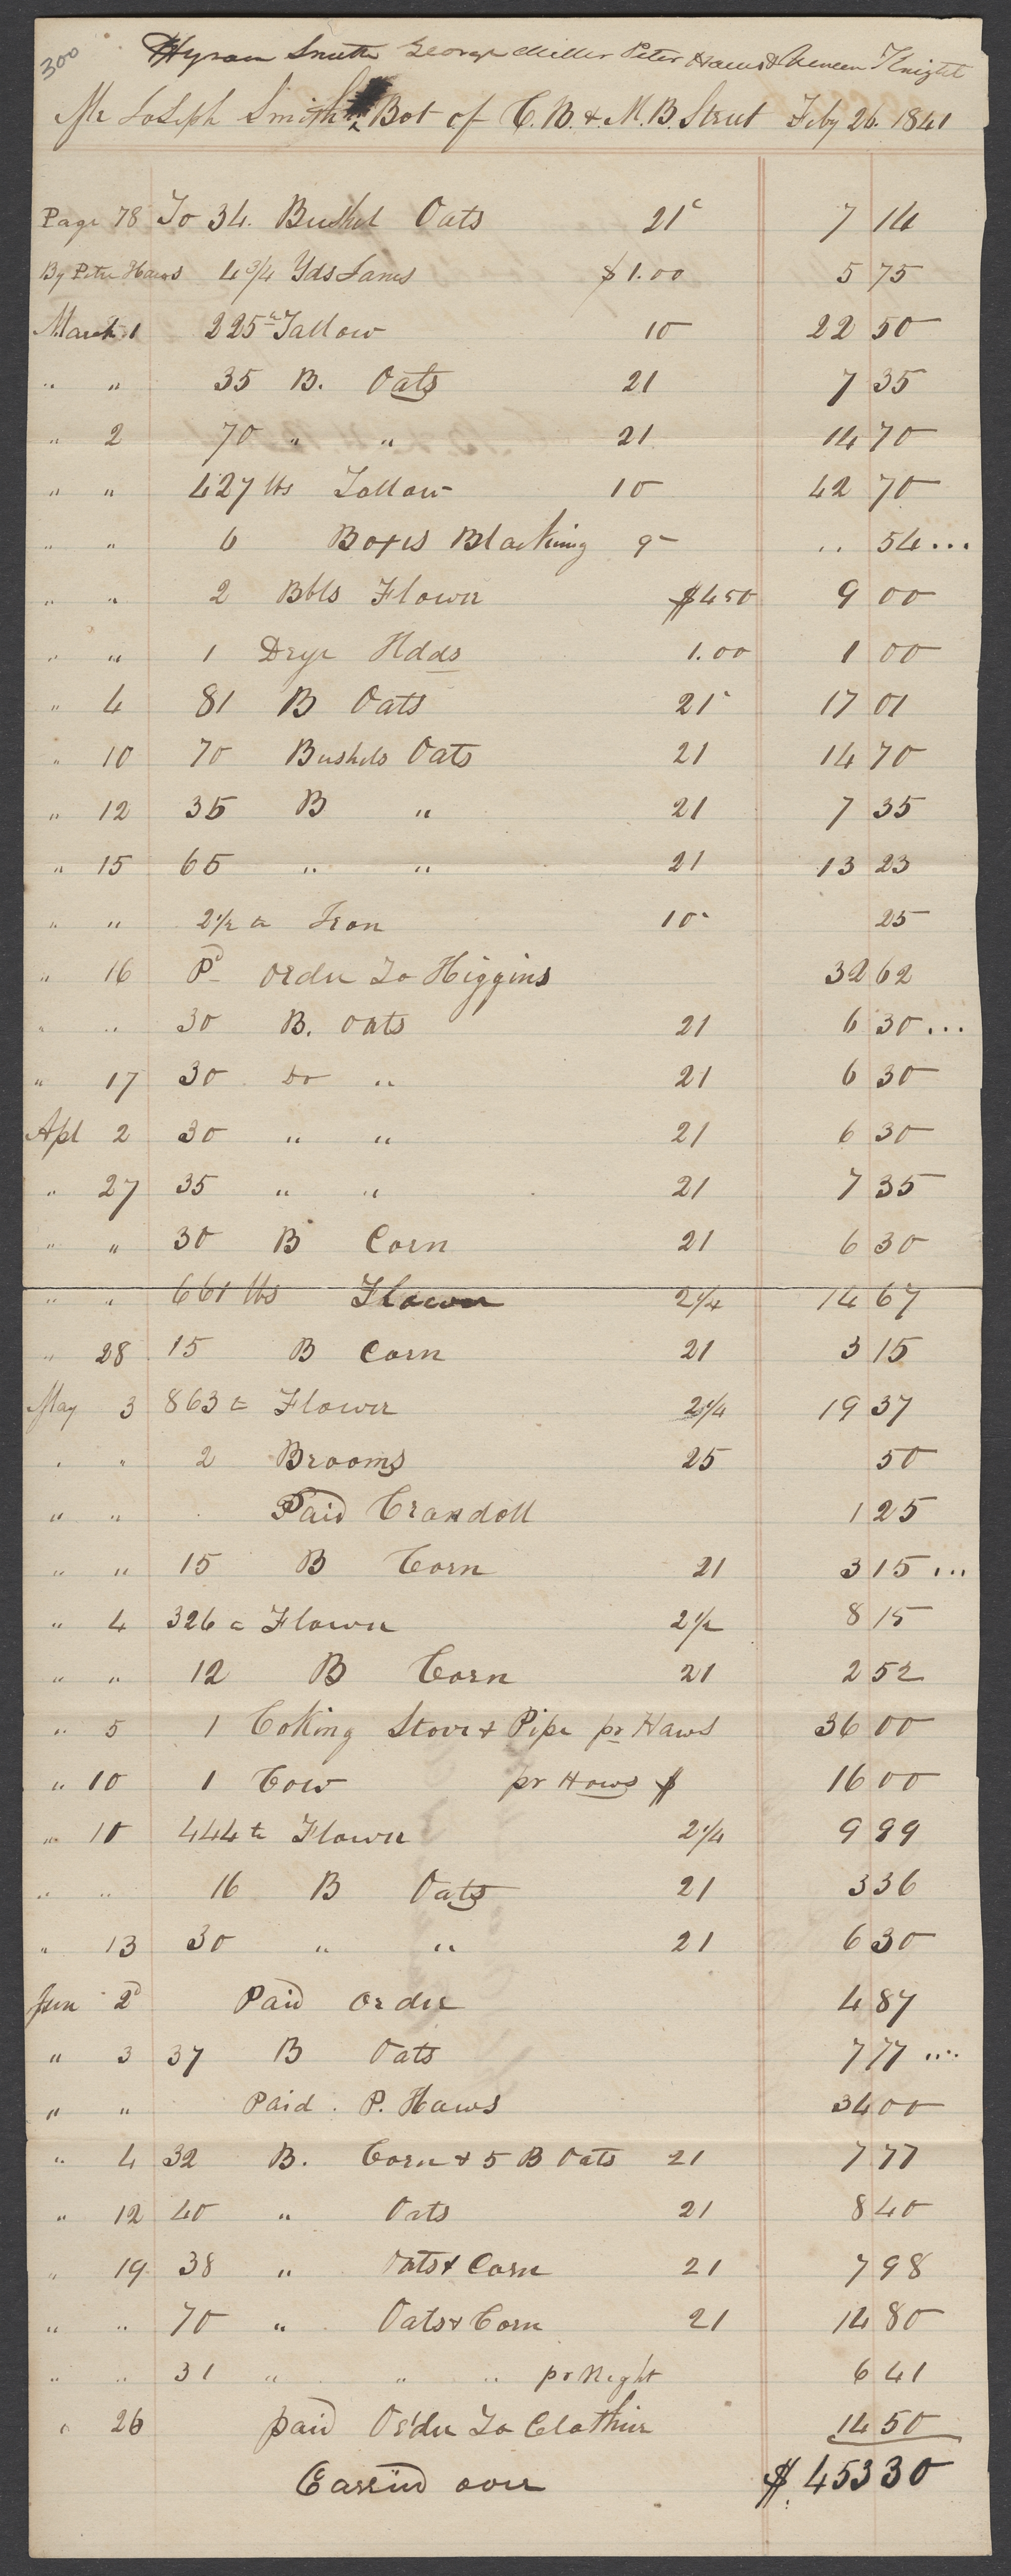 300
Hyram Smith George Miller Peter Haws & Vinson Knight
Mr Joseph Smith Bot of C. B. & M. B. Street Feby 26. 1841
Page 78 To 34. Bushel Oats 21c 7 14
By Peter Haws 4 3/4 Yds Janes $1.00 5 75
March 1 225 lb Tallow 10 22 50
" " 35 B. Oats 21 7 35
" 2 70 " " 21 14 70
" " 427 lbs Tallow 10 42 70
" " 6 Boxes Blacking 9 .. 54 ...
" " 2 Bbls Flower $4 50 9 00
" " 1 Drye Hdds 1.00 1 00
" 4 81 B Oats 21 17 01
" 10 70 Bushels Oats 21 14 70
" 12 35 B " 21 7 35
" 15 65 " " 21 13 23
" " 2 1/2 lb Iron 10 25
" 16 Pd Order To Higgins 32 62
" " 30 B. Oats 21 6 30 ...
" 17 30 Do " 21 6 30
Apl 2 30 " " 21 6 30
" 27 35 " " 21 7 35
" " 30 B Corn 21 6 30
" " 661 lbs Flower 2 1/4 14 67
" 28 15 B Corn 21 3 15
May 3 863 lb Flower 2 1/4 19 37
" " 2 Brooms 25 50
" " Paid Crandoll 1 25
" " 15 B Corn 21 3 15 ...
" 4 326 lb Flower 2 1/2 8 15
" " 12 B Corn 21 2 52
" 5 1 Coking Stove & Pipe pr Haws 36 00
" 10 1 Cow pr Haws $ 16 00
" 10 444 lb Flower 2 1/4 9 99
" " 16 B Oats 21 3 36
" 13 30 " " 21 6 30
Jun 2d Paid Order 4 87
" 3 37 B Oats 7 77 ....
" " Paid . P. Haws 34 00
" 4 32 B. Corn & 5 B Oats 21 7 77
" 12 40 " Oats 21 8 40
" 19 38 " Oats & Corn 21 7 98
" " 70 " Oats & Corn 21 14 80
" " 31 " " " pr Night 6 41
" 26 paid Order To Clothier 14 50
Carrid over $ 453 30